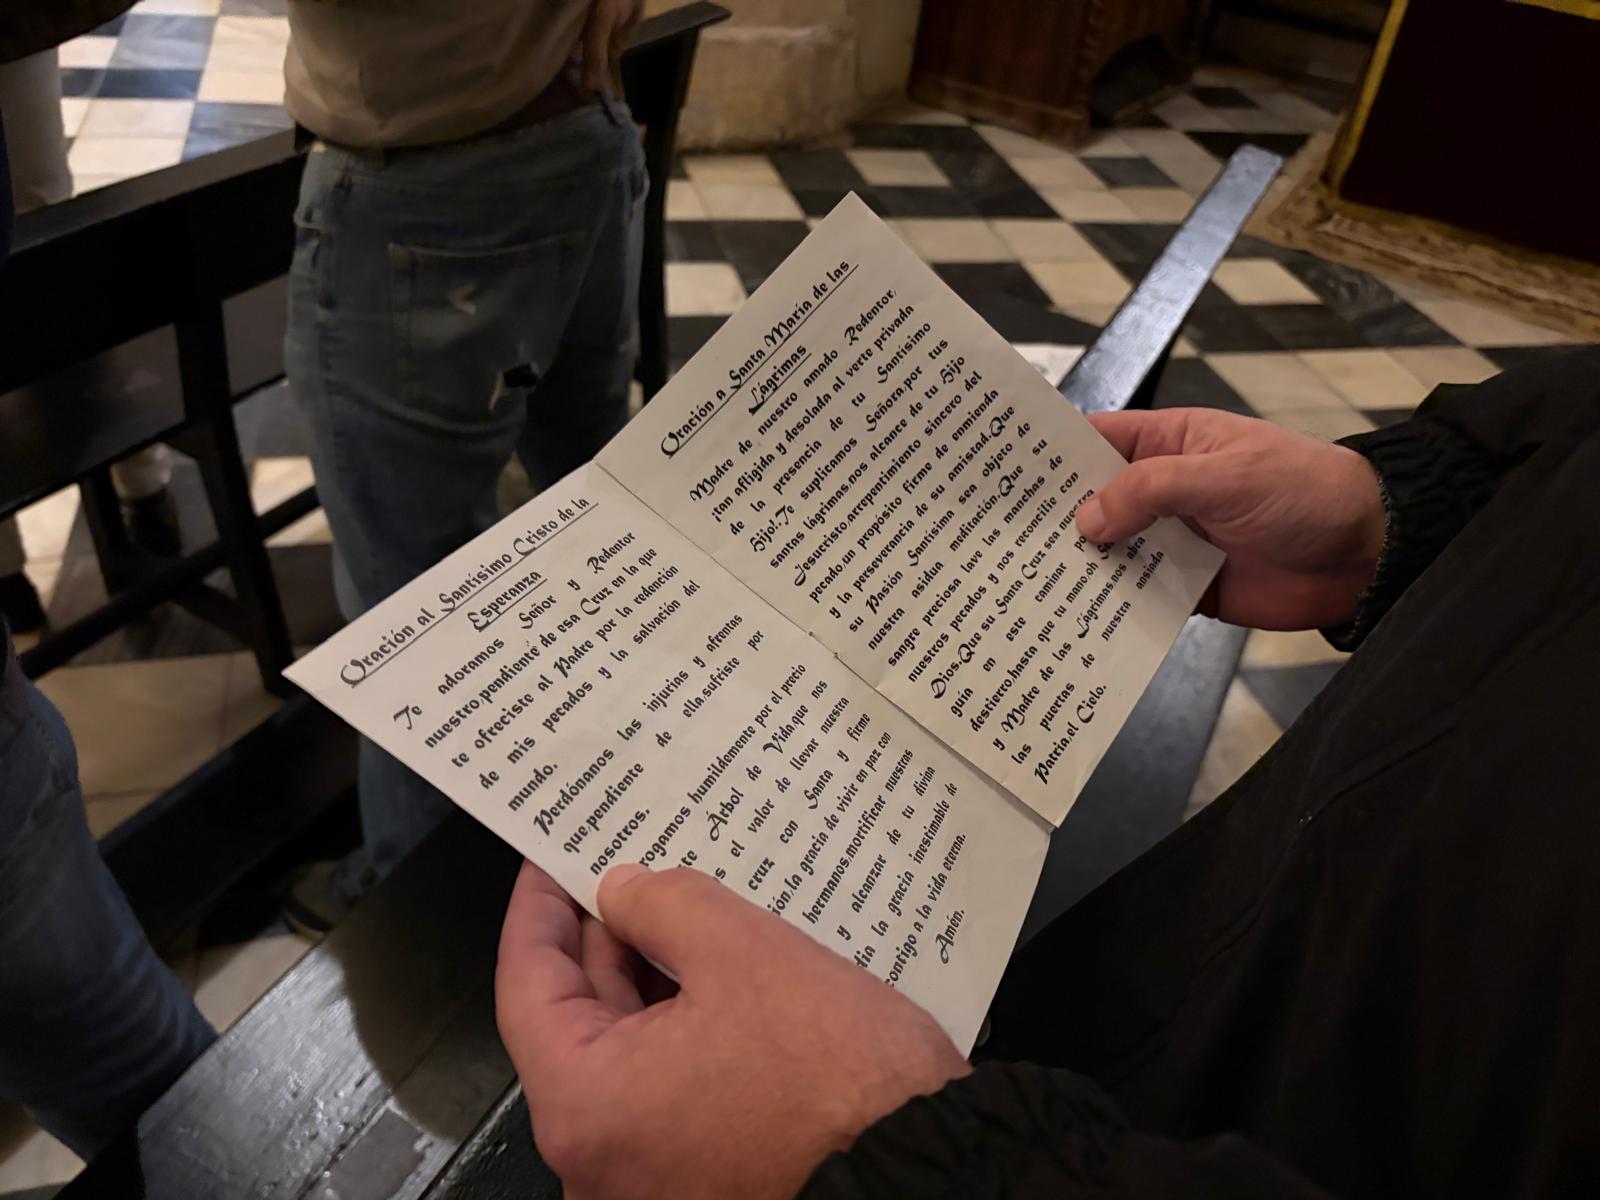 Oración al Santísimo Cristo de la
Esperanza
Te adoramos Señor y Redentor
nuestro,pendiente de esa Cruz en la que
te ofreciste al Padre por la redención
de mis pecados y la salvación del
mundo.
Perdónanos las injurias y afrentas
que,pendiente de ella,sufriste por
nosotros.
rogamos humildemente por el precio
Árbol de Vida,que nos
el valor de llevar nuestra
cruz con Santa y firme
la gracia de vivir en paz con
hermanos,mortificar nuestras
y alcanzar de tu divina
la gracia inestimable de
contigo a la vida eterna.
Amén.
Oración a Santa María de las
Lágrimas
Madre de nuestro amado Redentor,
¡tan afligida y desolada al verte privada
de la presencia de tu Santísimo
Hijo!.Te suplicamos Señora,por tus
santas lágrimas,nos alcance de tu Hijo
Jesucristo,arrepentimiento sincero del
pecado,un propósito firme de enmienda
y la perseverancia de su amistad.Que
su Pasión Santísima sea objeto de
nuestra asidua meditación.Que su
sangre preciosa lave las manchas de
nuestros pecados y nos reconcilie con
Dios.Que su Santa Cruz sea nuestra
guía en este caminar
destierro,hasta que tu mano,oh
y Madre de las Lágrimas,nos abra
las puertas de nuestra ansiada
Patria,el Cielo.